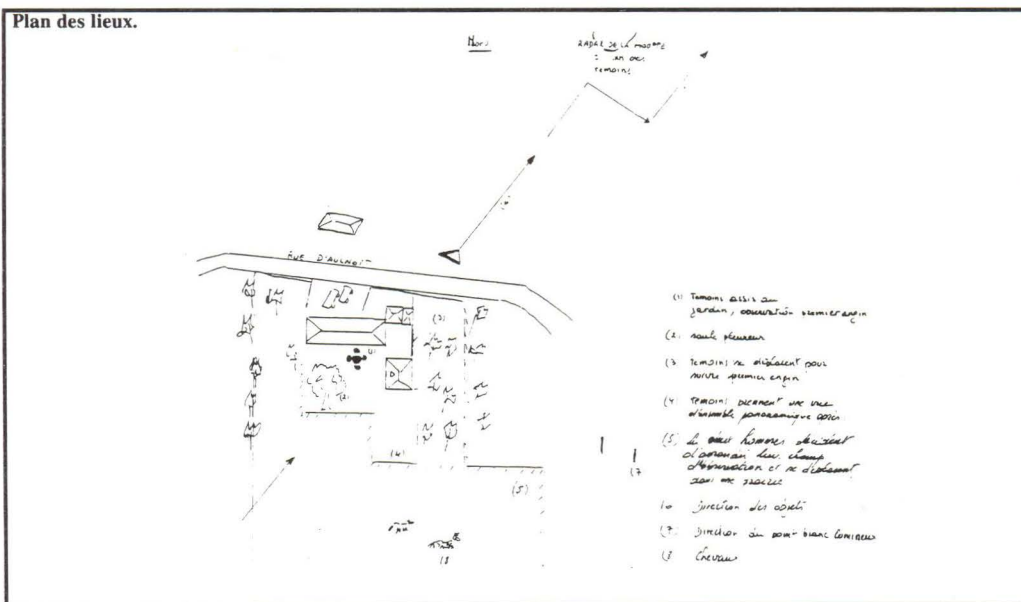 Plan des lieux.
Nord
RADAR DE LA
TEMOINS
RUE D'AULNOIT
(1) Temoins assis au
jardin, observation premier engin
(2. saule pleureur
(3 Temoins se déplacent pour
suivre premier engin
(4 Temoins prennent une vue
d'ensemble panoramique
(5) hommes décident
leur champ
d'observation et se déplacent
dans une
Direction des objets
(7) Direction du point blanc lumineux
Chevaux
(3)
(4)
(5)
(7